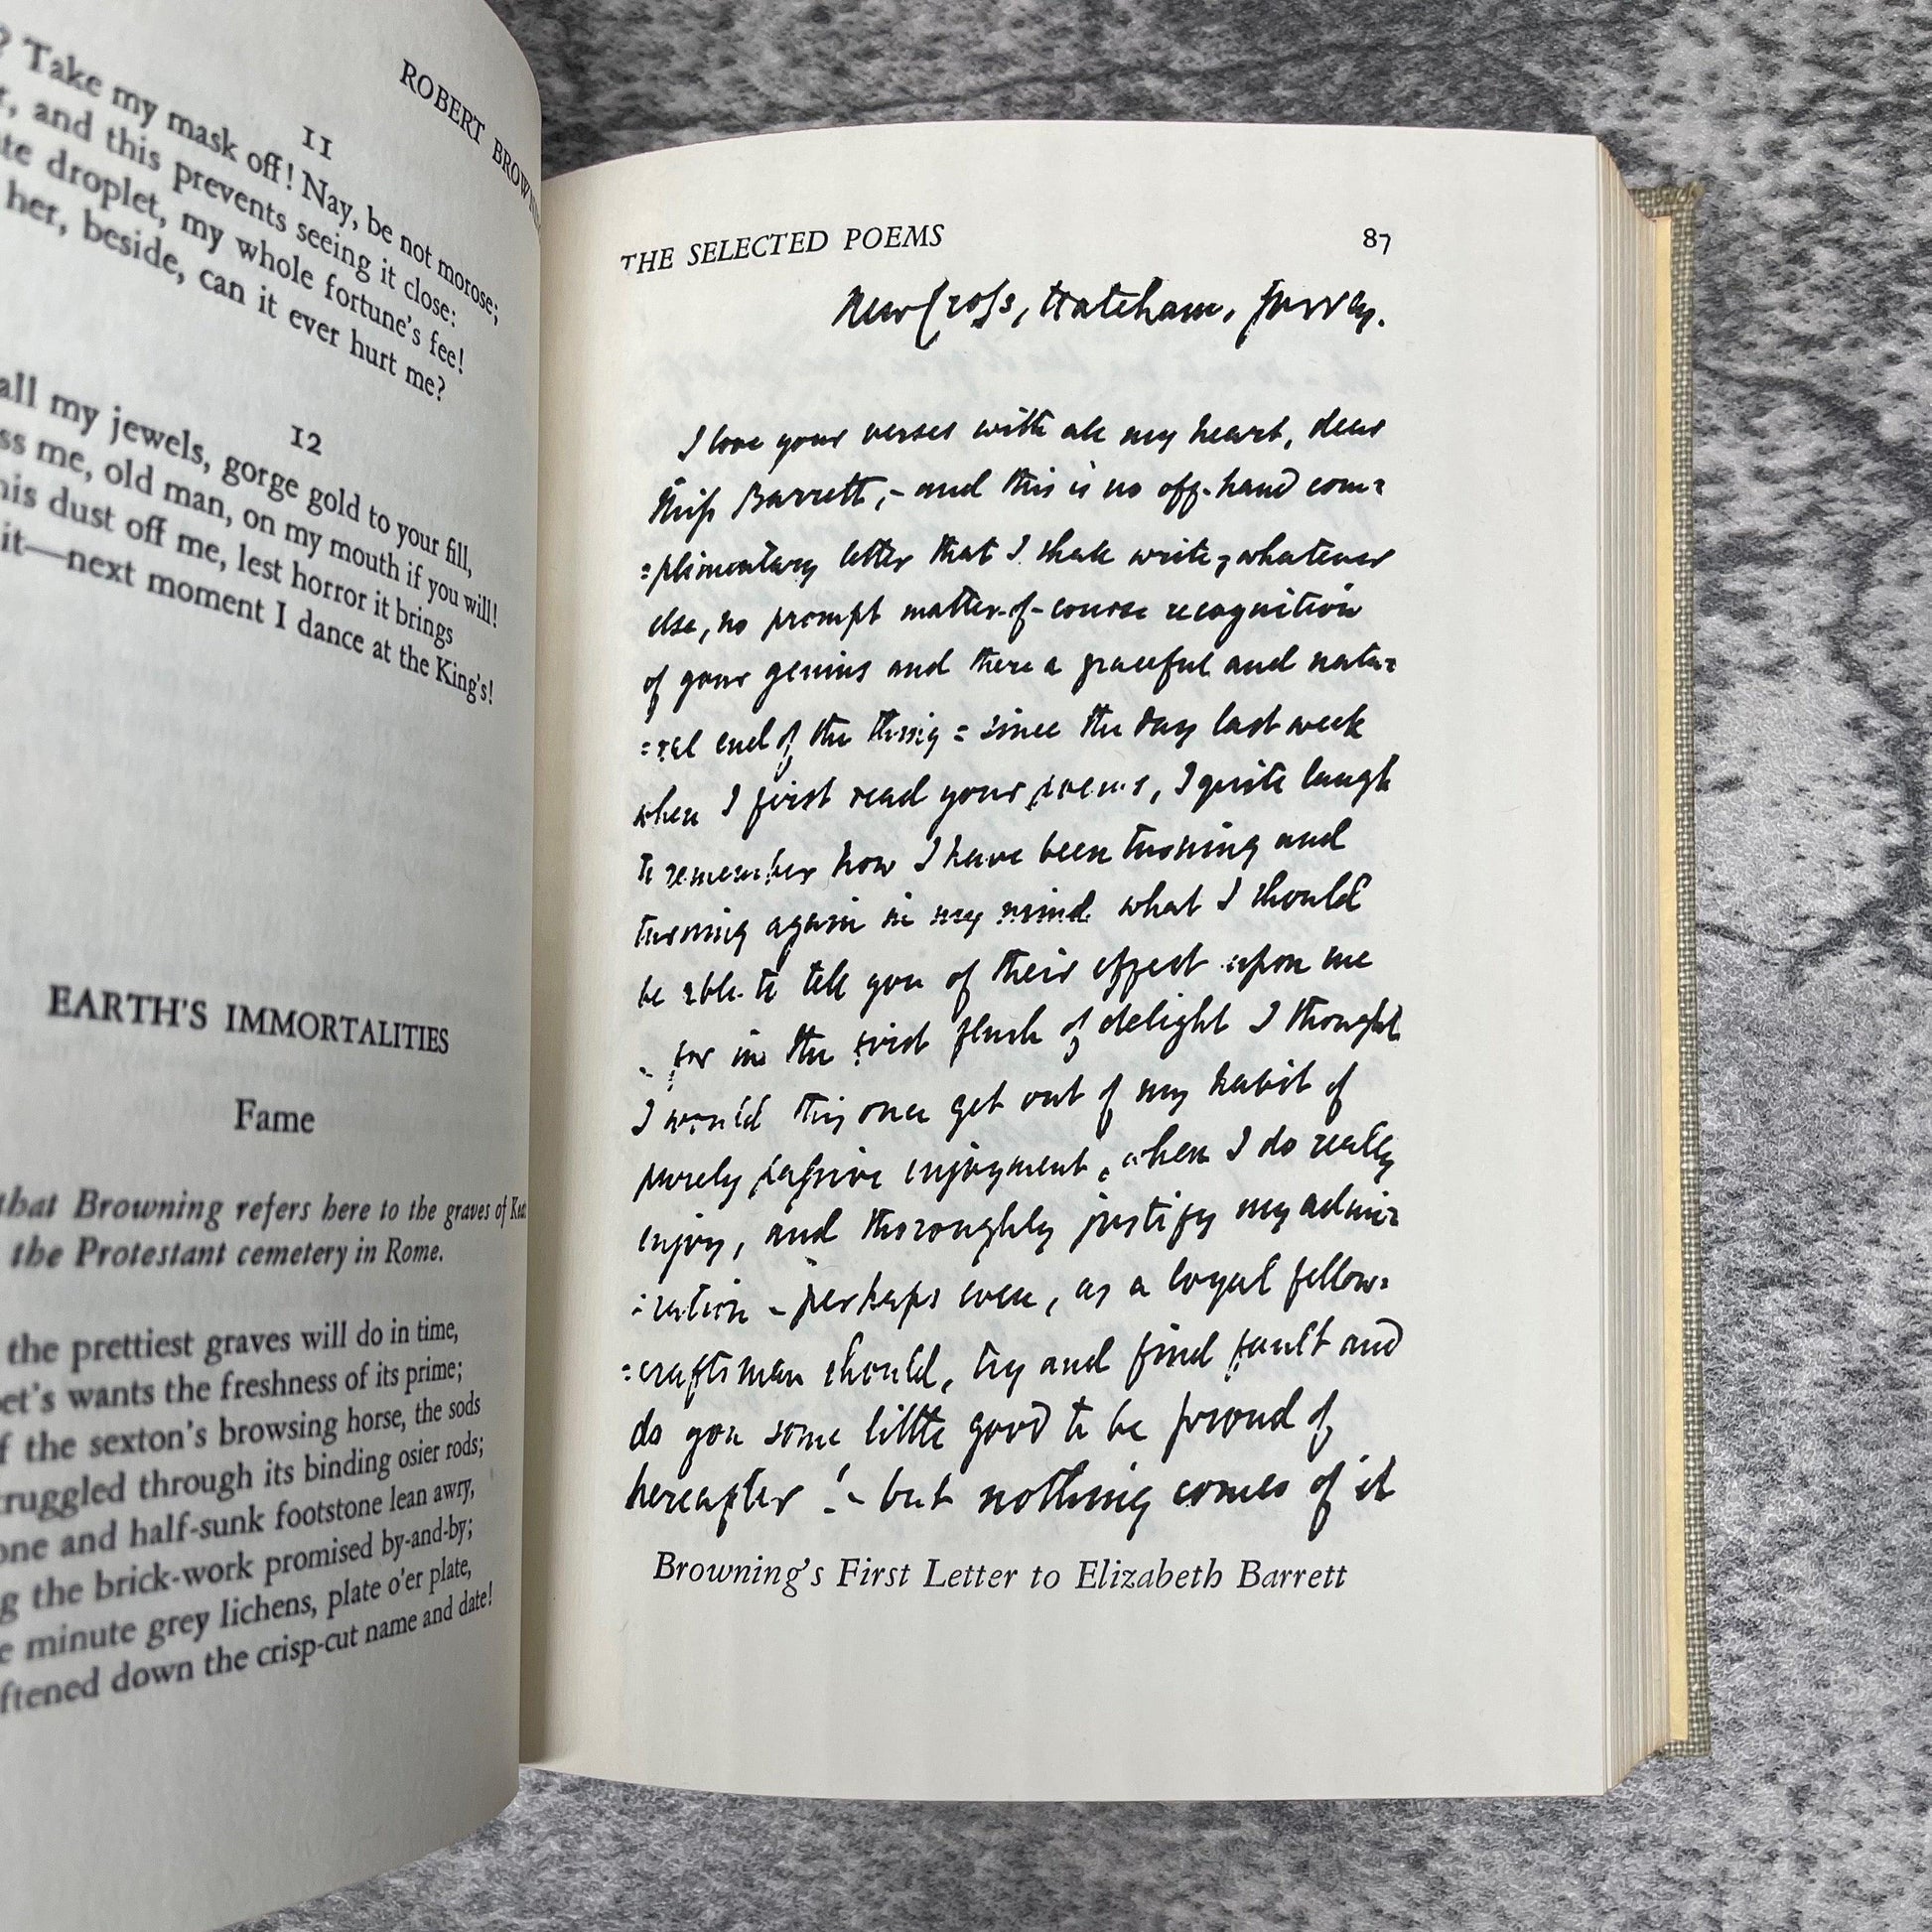 ROBERT BROWNING
11
? Take my mask off! Nay, be not morose;
r, and this prevents seeing it close:
te droplet, my whole fortune's fee!
her, beside, can it ever hurt me?
12
all my jewels, gorge gold to your fill,
ss me, old man, on my mouth if you will!
his dust off me, lest horror it brings
it—next moment I dance at the King's!
EARTH'S IMMORTALITIES
Fame
that Browning refers here to the graves of Kea
the Protestant cemetery in Rome.
the prettiest graves will do in time,
et's wants the freshness of its prime;
f the sexton's browsing horse, the sods
truggled through its binding osier rods;
one and half-sunk footstone lean awry,
g the brick-work promised by-and-by;
e minute grey lichens, plate o'er plate,
ftened down the crisp-cut name and date!
THE SELECTED POEMS 87
New Cross, Hatcham, Surrey.
I love your verses with all my heart, dear
Miss Barrett,- and this is no off-hand com=
=plimentary letter that I shall write,-whatever
else, no prompt matter-of-course recognition
of your genius and there a graceful and natu=
=ral end of the thing = since the day last week
when I first read your poems, I quite laugh
to remember how I have been turning and
turning again in my mind what I should
be able to tell you of their effect upon me
- for in the first flush of delight I thought
I would this once get out of my habit of
purely passive enjoyment, when I do really
enjoy, and thoroughly justify my admi=
=ration - perhaps even, as a loyal fellow=
=craftsman should, try and find fault and
do you some little good to be proud of
hereafter!- but nothing comes of it
Browning's First Letter to Elizabeth Barrett